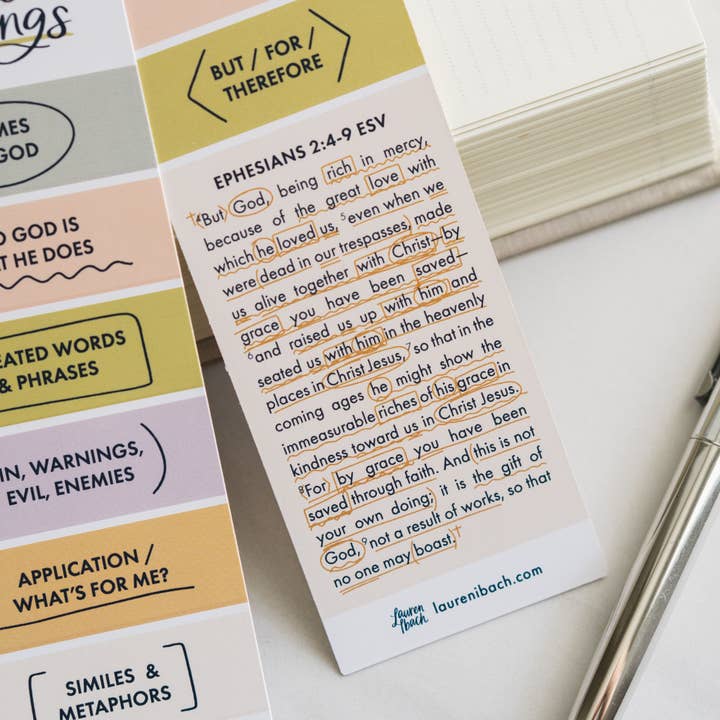 BUT / FOR /
THEREFORE
EPHESIANS 2:4-9 ESV
⁴But God, being rich in mercy,
because of the great love with
which he loved us, ⁵even when we
were dead in our trespasses, made
us alive together with Christ—by
grace you have been saved—
⁶and raised us up with him and
seated us with him in the heavenly
places in Christ Jesus, ⁷so that in the
coming ages he might show the
immeasurable riches of his grace in
kindness toward us in Christ Jesus.
⁸For by grace you have been
saved through faith. And this is not
your own doing; it is the gift of
God, ⁹not a result of works, so that
no one may boast.
Lauren
Ibach
laurenibach.com
GOD
GOD IS
HE DOES
WORDS
& PHRASES
WARNINGS,
EVIL, ENEMIES
APPLICATION /
WHAT'S FOR ME?
SIMILES &
METAPHORS